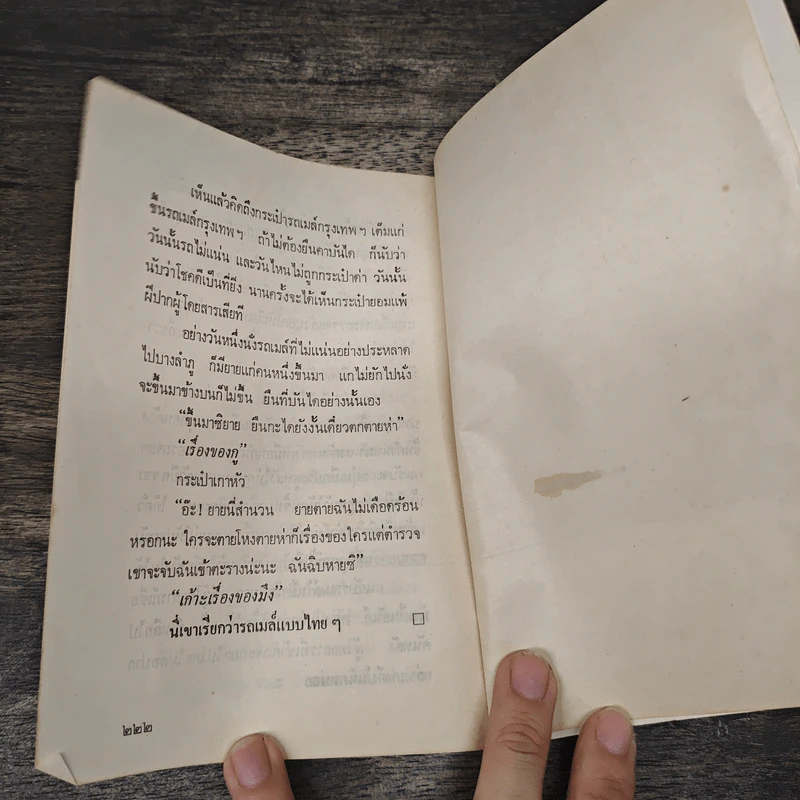 เห็นแล้วคิดถึงกระเป๋ารถเมล์กรุงเทพฯ เต็มแก่
ขึ้นรถเมล์กรุงเทพฯ ถ้าไม่ต้องยืนคาบันได ก็นับว่า
วันนั้นรถไม่แน่น และวันไหนไม่ถูกกระเป๋าด่า วันนั้น
นับว่าโชคดีเป็นที่ยิ่ง นานครั้งจะได้เห็นกระเป๋ายอมแพ้
ฝีปากผู้โดยสารเสียที
อย่างวันหนึ่งนั่งรถเมล์ที่ไม่แน่นอย่างประหลาด
ไปบางลำภู ก็มียายแก่คนหนึ่งขึ้นมา แกไม่ยักไปนั่ง
จะขึ้นมาข้างบนก็ไม่ขึ้น ยืนที่บันไดอย่างนั้นเอง
“ขึ้นมาซิยาย ยืนกะไดยังงั้นเดี๋ยวตกตายห่า”
“เรื่องของกู”
กระเป๋าเกาหัว
“อ๊ะ! ยายนี่สำนวน ยายตายฉันไม่เดือดร้อน
หรอกนะ ใครจะตายโหงตายห่าก็เรื่องของใครแต่ตำรวจ
เขาจะจับฉันเข้าตะรางน่ะนะ ฉันฉิบหายซิ”
“เก๊าะเรื่องของมึง”
นี่เขาเรียกว่ารถเมล์แบบไทย ๆ
๒๒๒